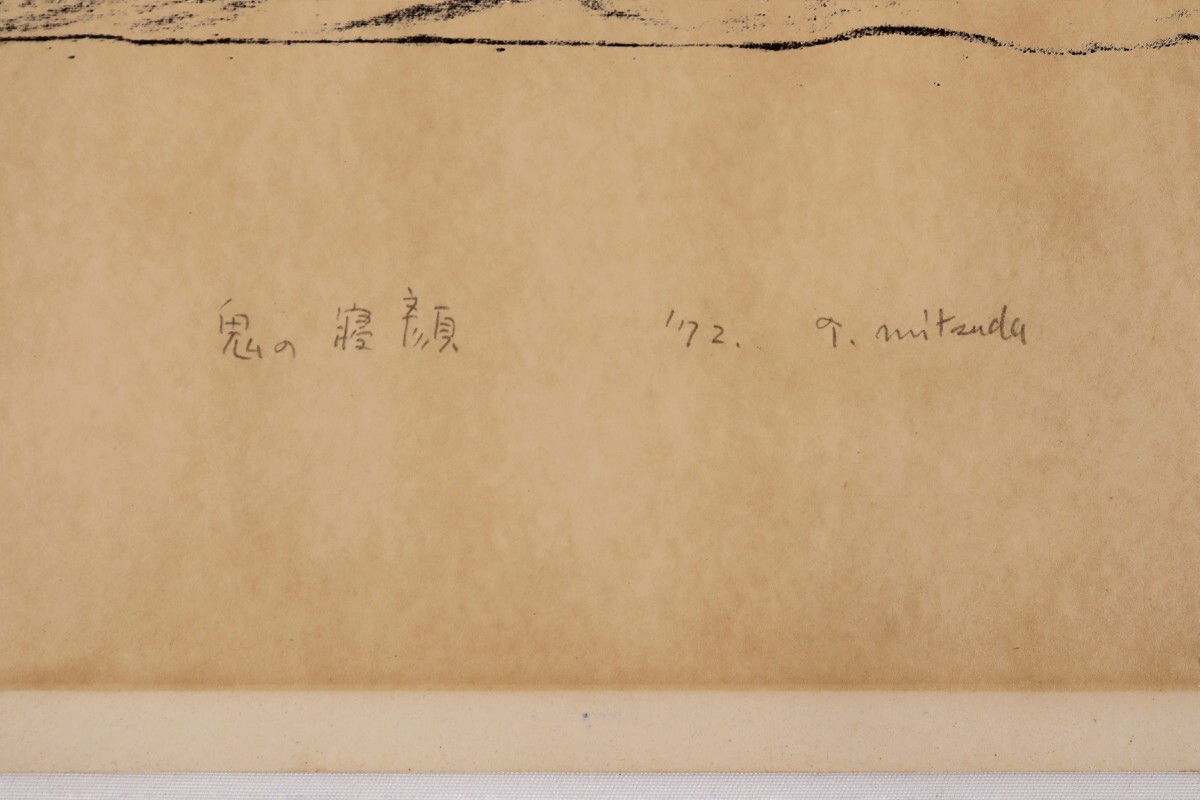 鬼の寝顔 '72. T. mitsuda